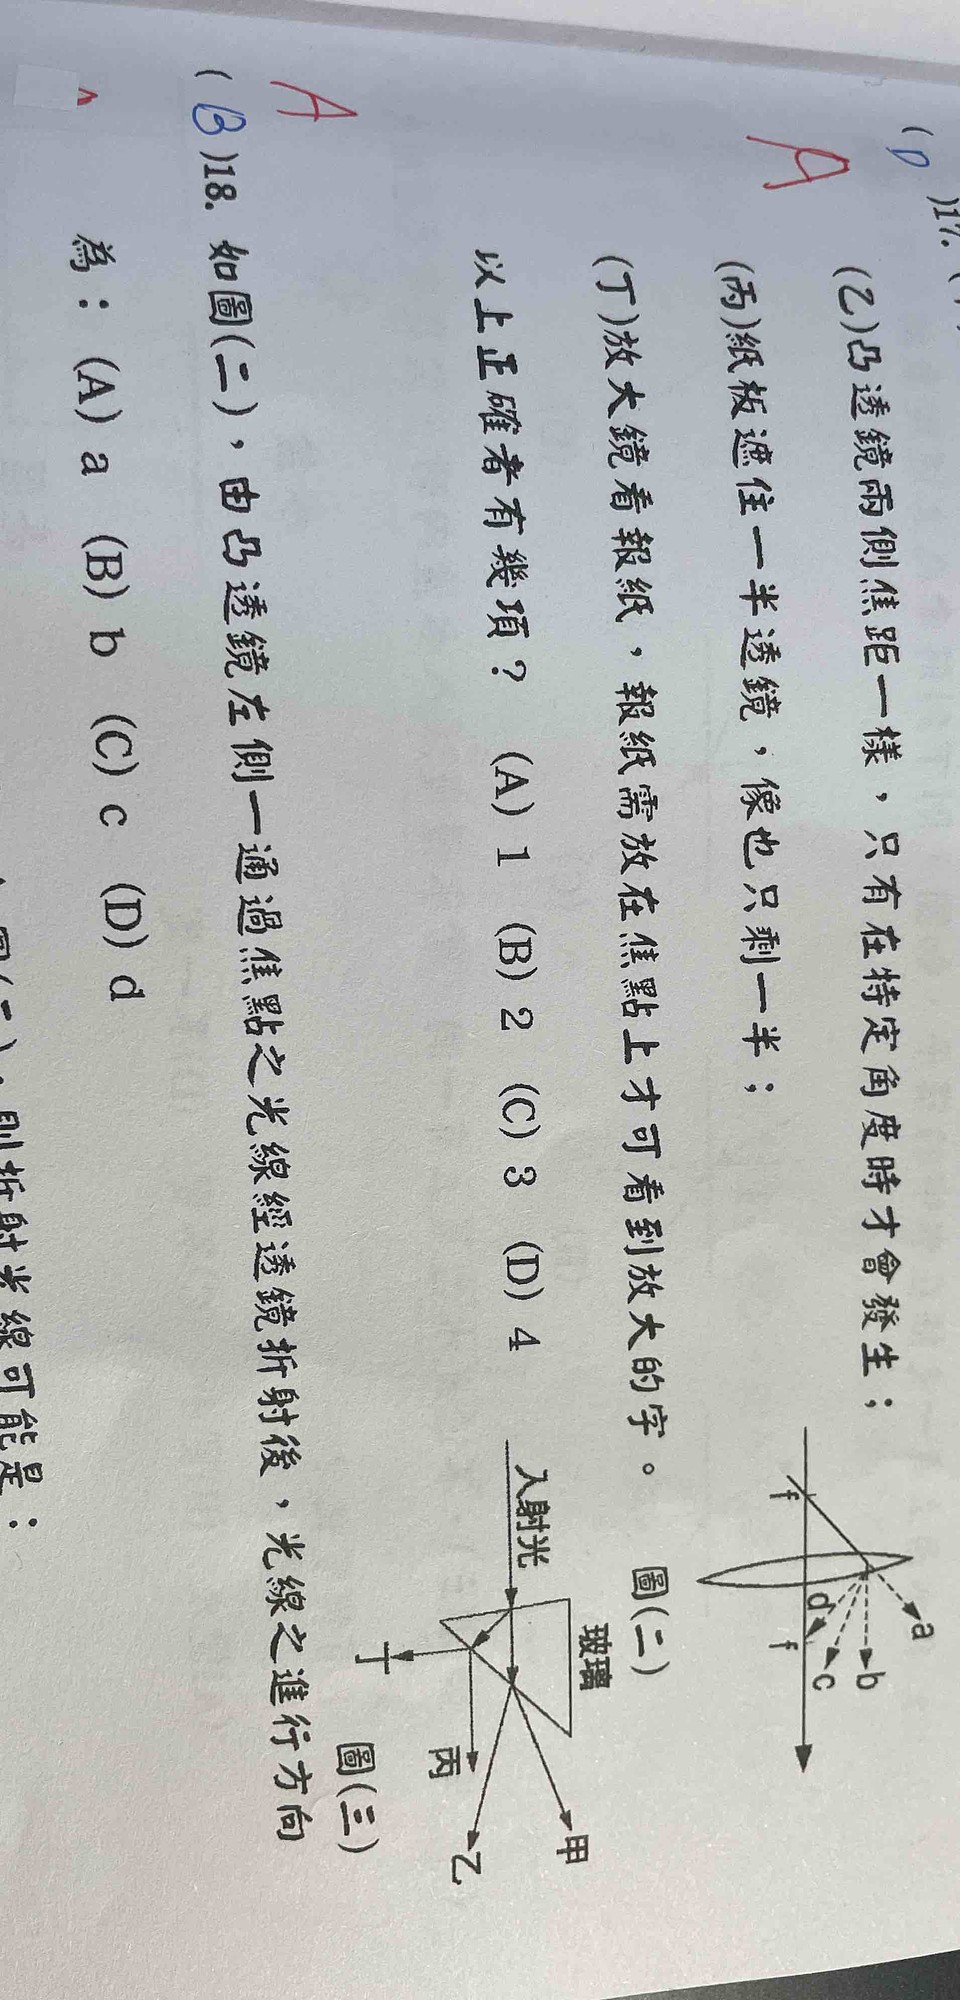 (D)17.
(乙)凸透鏡兩側焦距一樣,只有在特定角度時才會發生;
A
(丙)紙板遮住一半透鏡,像也只剩一半;
(丁)放大鏡看報紙,報紙需放在焦點上才可看到放大的字。
以上正確者有幾項? (A) 1 (B) 2 (C) 3 (D) 4
f
f
a
b
c
d
圖(二)
入射光
玻璃
甲
乙
丙
丁
圖(三)
A
(B)18. 如圖(二),由凸透鏡左側一通過焦點之光線經透鏡折射後,光線之進行方向
為: (A) a (B) b (C) c (D) d
則折射光線可能是: